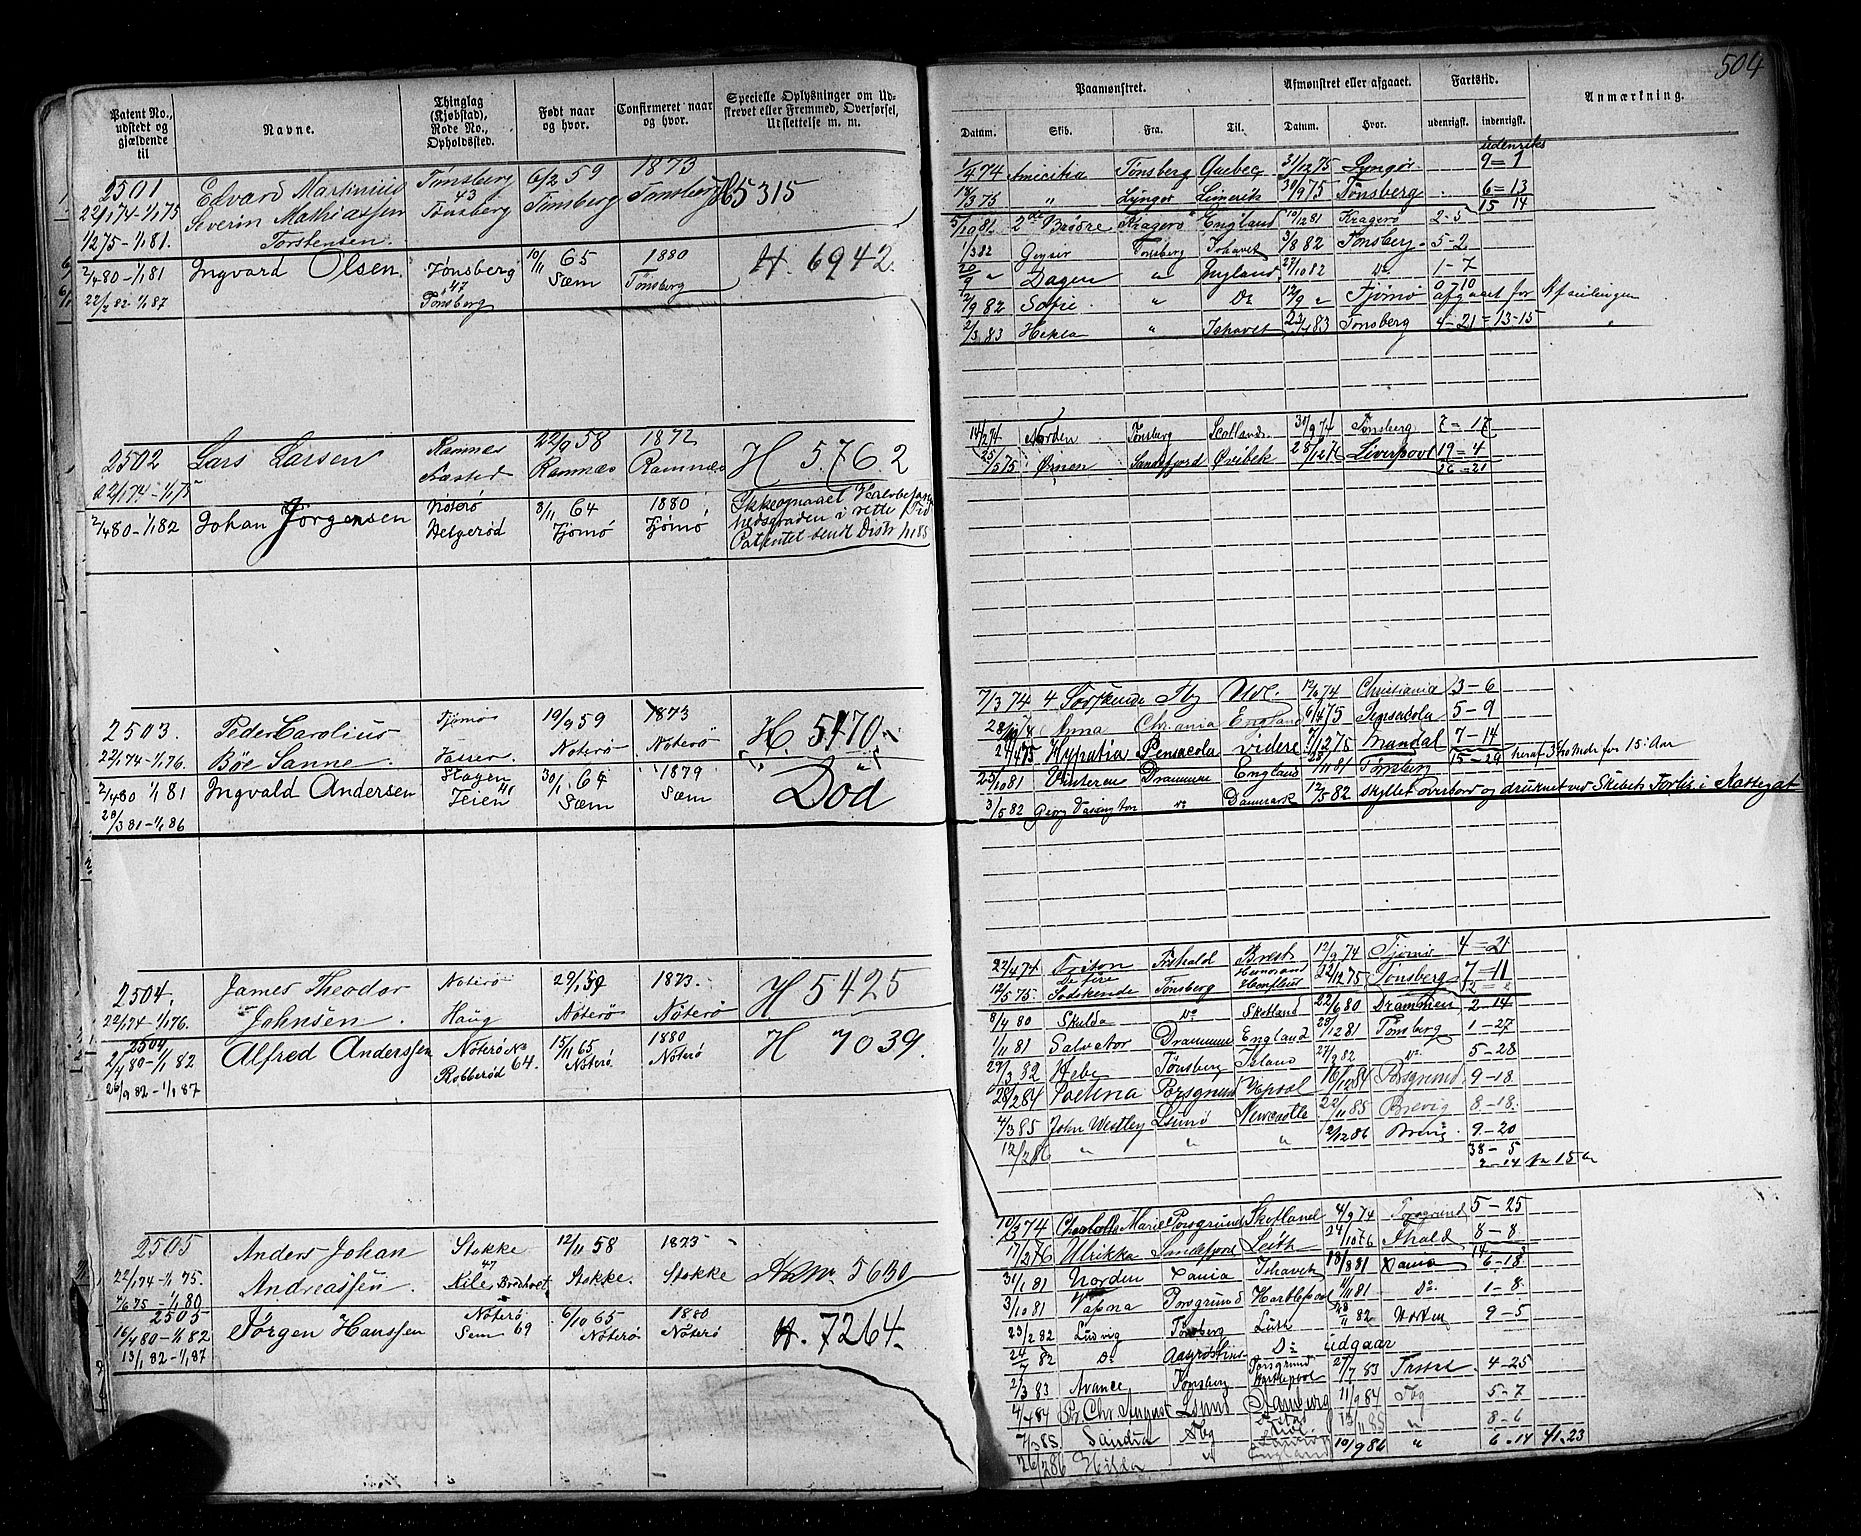 504
Patent No., udstedt og gjældende til
Navne.
Thinglag (Kjøbstad), Rode No., Opholdssted.
Født naar og hvor.
Confirmeret naar og hvor.
Specielle Oplysninger om Udskrevet eller Fremmed, Overførsel, Udslettelse m. m.
Paamønstret.
Afmønstret eller afgaaet.
Fartstid.
Anmærkning.
Datum. Skib. Fra. Til. Datum. Hvor. udenrigsk. indenrigsk.
2501 Edvard Martinius Tønsberg 6/2 59 1873
22/1 74-1/1 75 Severin Mathiassen 43 Tønsberg Tønsberg Tønsberg H 5315
1/2 75-1/1 81. Torstensen.
2/4 80-1/1 81 Ingvard Olsen. Tønsberg 10/11 65 1880 H. 6942.
22/2 82-1/1 87 47 Tønsberg Sæm Tønsberg
udenriks
1/4 74 Amicitia Tønsberg Quebec 31/12 75 Lyngør 9=1
18/3 75 " Lyngør Limerik 30/9 75 Tønsberg 6=13
15 14
5/10 81 2de Brødre Kragerø England 10/12 81 Kragerø 2-5
1/3 82 Geysir Tønsberg Ishavet 3/8 82 Tønsberg 5-2
20/9 " Dagen " England 27/10 82 Do 1-7
12/9 82 Sofie " Do 12/9 " Tjømø afgaaet før Afseilingen
2/3 83 Hekla " Ishavet 23/7 83 Tønsberg 4-21 =13-15
2502 Lars Larsen Ramnes 22/9 58 1872 H 5.76.2
22/1 74-1/1 75 Aasted Ramnæs Ramnæs
2/4 80-1/1 82 Johan Jørgensen Nøterø 8/11 64 1880
Helgerød Tjømø Tjømø
Ikke opnaaet Halvbefarenhedsgraden i rette Tid
Patentet sendt Distr 1/1 85
14/2 74 Norden Tønsberg Scotland. 30/9 74 Tønsberg 7=17
25/5 75 Ørnen Sandefjord Qvibek 28/12 76 Liverpool 19=4
26-21
2503. Peder Carolius Tjømø 19/9 59 1873 H. 5470.
22/1 74-1/1 76. Bøe Sanne. Nøterø Nøterø
2/4 80 1/1 81 Ingvald Andersen Slagen 30/1 64 1879 Død
28/3 81-1/1 86 Jeien Sæm Sæm
7/3 74 4 Søskende Tbg 12/6 74 Christiania 3-6
Anna Chrania England 6/4 75 Pensacola 5-9
24/4 75 Hypatia Pensacola videre 7/12 75 Mandal 7-14
15-29
25/10 81 Drammen England Tønsberg
3/5 82 Georg Do Danmark 12/5 82 skyllet overbord og druknet ved Skibets Forlis i Kattegat
2504. James Theodor Nøterø 29/1 59 1873. H 5425
22/1 74-1/1 76. Johnsen. Haug Nøterø Nøterø
2504
2/4 80-1/1 82 Alfred Anderssen Nøterø No 15/11 65 1880 H 7039.
26/9 82-1/1 87 Robberød 64. Nøterø Nøterø
22/4 74 Triton Frhald Brest 12/9 74 Tjømø 4=21
12/5 75. De fire Sødskende Tønsberg 22/12 75 Tønsberg 7=11
8/4 80 Skulda Do Skotland 22/6 80 Drammen 2-14
1/11 81 Salvator Drammen England 28/12 81 Tønsberg 1-27
27/3 82 Hebe Tønsberg Island 27/9 82 Do 5-28
28/2 84 Porsgrund 16/12 84 Porsgrund 9-18
4/3 85 John Westley Lsund Newcastle 22/11 85 Brevig 8-18.
12/2 86 " " " 2/12 86 Brevig. 9-20
38-5
2505 Anders Johan Stokke 12/11 58 1873
22/1 74-1/1 75. Andreassen. 47 Stokke. Stokke 5630
4/6 75-1/1 80
2505
16/4 80-1/1 82 Jørgen Hanssen Nøterø 6/10 65 1880 H. 7264.
13/1 82-1/1 87 Sem 69 Nøterø Nøterø
10/3 74 Charlotte Marie Porsgrund Skotland 4/9 74 Porsgrund 5-25
17/2 76 Ulrikka Sandefjord Leith 24/10 76 Fhald 8-8
31/1 81 Norden Xania Ishavet 18/8 81 Xania 6-18
3/10 81 Vapna Porsgrund Hartlepool 11/11 81 Do. 1-8
23/2 82 Ludvig Tønsberg Leith 82 Horten 9-5
24/7 82 Do Do udgaar
2/3 83 Avance Tønsberg Porsgrund Hartlepool 27/7 83 4-25
4/4 84 Pr Chr August Lsund Hamburg 11/9 84 Tbg 5-7
7/3 85. Sandra Tbg 13/11 85 " 8-6
26/2 86 Hilda " England 10/9 86 " 6-14 41-23